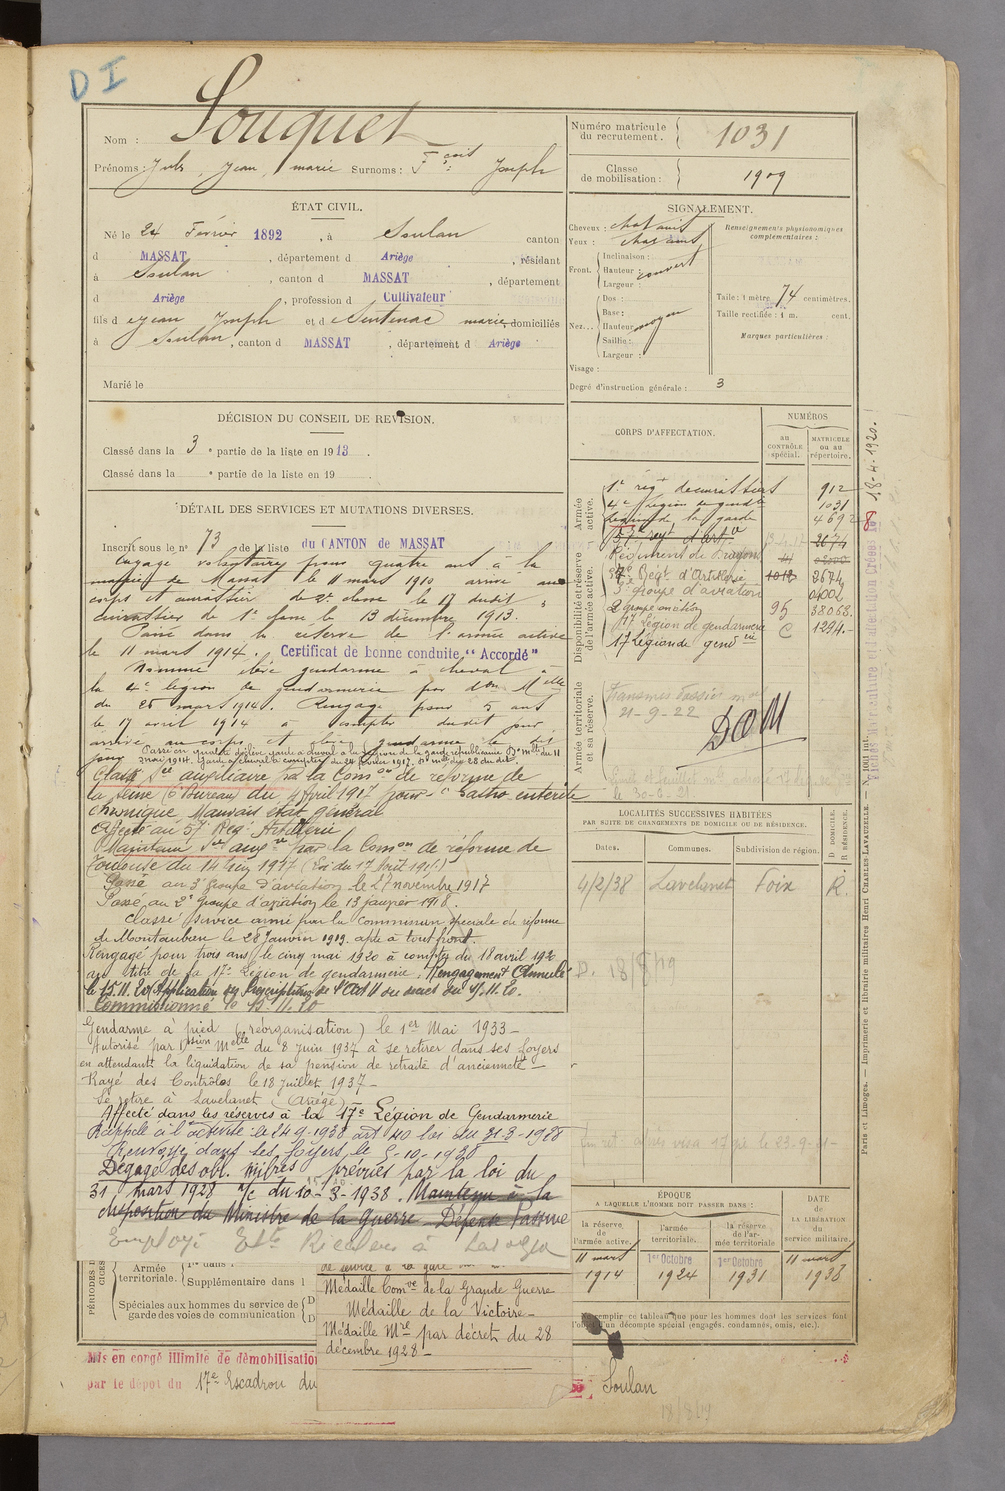 D I
Nom : Souquet
Prénoms : Jules, Jean, marie Surnoms : Fçois Joseph
Numéro matricule du recrutement : 1031
Classe de mobilisation : 1909
ÉTAT CIVIL.
Né le 24 Février 1892, à Soulan canton
d MASSAT, département d Ariège, résidant
à Soulan, canton d MASSAT, département
d Ariège, profession d Cultivateur
fils d Jean Joseph et d Sentenac marie, domiciliés
à Soulan, canton d MASSAT, département d Ariège
Marié le
SIGNALEMENT.
Cheveux : chatains
Yeux : chatains
Front.
Inclinaison :
Hauteur : couvert
Largeur :
Nez...
Dos :
Base :
Hauteur moyen
Saillie :
Largeur :
Visage :
Renseignements physionomiques complémentaires :
Taille : 1 mètre 74 centimètres.
Taille rectifiée : 1 m. cent.
Marques particulières :
Degré d'instruction générale : 3
DÉCISION DU CONSEIL DE REVISION.
Classé dans la 3e partie de la liste en 1913.
Classé dans la e partie de la liste en 19 .
DÉTAIL DES SERVICES ET MUTATIONS DIVERSES.
Inscrit sous le no 73 de la liste du CANTON de MASSAT
Engagé volontaire pour quatre ans à la
mairie de Massat le 11 mars 1910 arrivé au
corps et cuirassier de 2e classe le 17 dudit,
cuirassier de 1e classe le 13 décembre 1913.
Passé dans la réserve de l'armée active
le 11 mars 1914. Certificat de bonne conduite "Accordé"
Nommé élève gendarme à cheval à
la 4e légion de gendarmerie par Don Melle
du 25 mars 1914. Rengagé pour 5 ans
le 17 avril 1914 à compter dudit jour
arrivé au corps et élève gendarme le dit
jour
Passé en qualité d'élève garde à cheval à la Légion de la garde républicaine Don mlle du 11
mai 1914. Garde à cheval à compter du 24 février 1917. Don mlle du 28 du dit.
Classé Sce auxiliaire par la Comon de réforme de
la Seine (6e Bureau) du 4 Avril 1917 pour "Gastro entérite
chronique Mauvais état général
Affecté au 57e Régt Artillerie
Maintenu Sce auxre par la Comon de réforme de
Toulouse du 14 Juin 1917 (Loi du 17 Août 1915)
Passé au 3e Groupe d'aviation le 27 novembre 1917
Passé au 2e Groupe d'aviation le 13 janvier 1918.
Classé service armé par la Commission spéciale de réforme
de Montauban le 28 Janvier 1919. apte à tout front.
Rengagé pour trois ans le cinq mai 1920 à compter du 18 avril 1920
au titre de la 17e Légion de gendarmerie. Rengagement Annulé
le 15.11.20
Commissionné le 15.11.20
Gendarme à pied (réorganisation) le 1er Mai 1933 -
Autorisé par Dsion Melle du 8 Juin 1937 à se retirer dans ses foyers
en attendant la liquidation de sa pension de retraite d'ancienneté -
Rayé des Contrôles le 18 juillet 1937 -
Se retire à Lavelanet (Ariège)
Affecté dans les réserves à la 17e Légion de Gendarmerie
Rappelé à l'activité le 24 9-1938 art 40 loi du 31-3-1928
Renvoyé dans ses foyers le 5-10-1938
Dégagé des obl. mibres prévues par la loi du
31 mars 1928 a/c du 10-3-1938. Maintenu à la
disposition du Ministre de la Guerre - Défense Passive
CORPS D'AFFECTATION.
NUMÉROS
AU CONTRÔLE SPÉCIAL.
MATRICULE OU AU RÉPERTOIRE.
Armée active.
1e régt de cuirassiers 912
4e Légion de gendie 1031
Légion de la garde 4692
57e regt d'artie 2674
Disponibilité et réserve de l'armée active.
Régiment de Dragons
57e Régt d'Artillerie 1012 2674
3e groupe d'aviation
2 groupe aviation 95 38068
17 Légion de gendarmerie C 1294.-
17 Légion de gendrie
Armée territoriale et sa réserve.
21-9-22
DOM
le 30-6-21
18-4-1920.
8
LOCALITÉS SUCCESSIVES HABITÉES
PAR SUITE DE CHANGEMENTS DE DOMICILE OU DE RÉSIDENCE.
Dates. Communes. Subdivision de région. D DOMICILE. R RÉSIDENCE.
4/2/38 Lavelanet Foix R.
D. 18/8/19
visa 17
ÉPOQUE
A LAQUELLE L'HOMME DOIT PASSER DANS :
la réserve de l'armée active.
l'armée territoriale.
la réserve de l'armée territoriale
DATE DE LA LIBÉRATION du service militaire.
11 mars 1914
1er Octobre 1924
1er Octobre 1931
11 mars 1938
Remplir ce tableau que pour les hommes dont les services font
l'objet d'un décompte spécial (engagés, condamnés, omis, etc.).
Armée territoriale.
Supplémentaire dans l
Spéciales aux hommes du service de garde des voies de communication
Médaille Comve de la Grande Guerre
Médaille de la Victoire -
Médaille Mre par décret du 28
décembre 1928 -
Mis en congé illimité de démobilisation
par le dépôt du 17e Escadron du
Soulan
18/8/19
Paris et Limoges. — Imprimerie et librairie militaires Henri CHARLES-LAVAUZELLE.